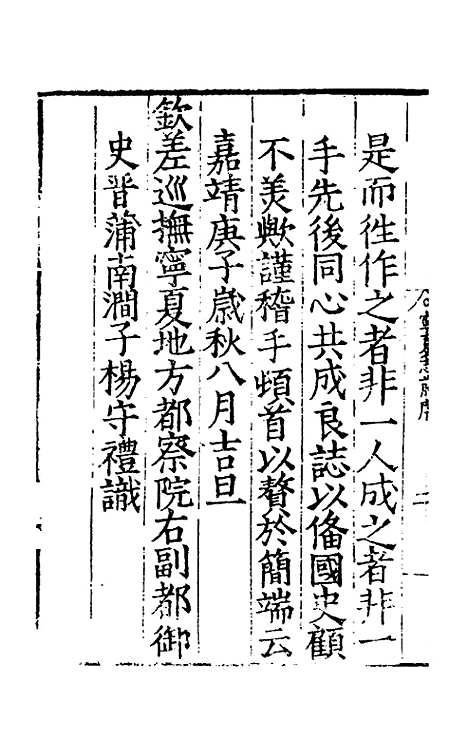 是而徃作之者非一人成之者非一
手先後同心共成良誌以俻國史顧
不美歟謹稽手頓首以贅於簡端云
嘉靖庚子歲秋八月吉旦
欽差巡撫寧夏地方都察院右副都御
史晋蒲南澗子楊守禮識